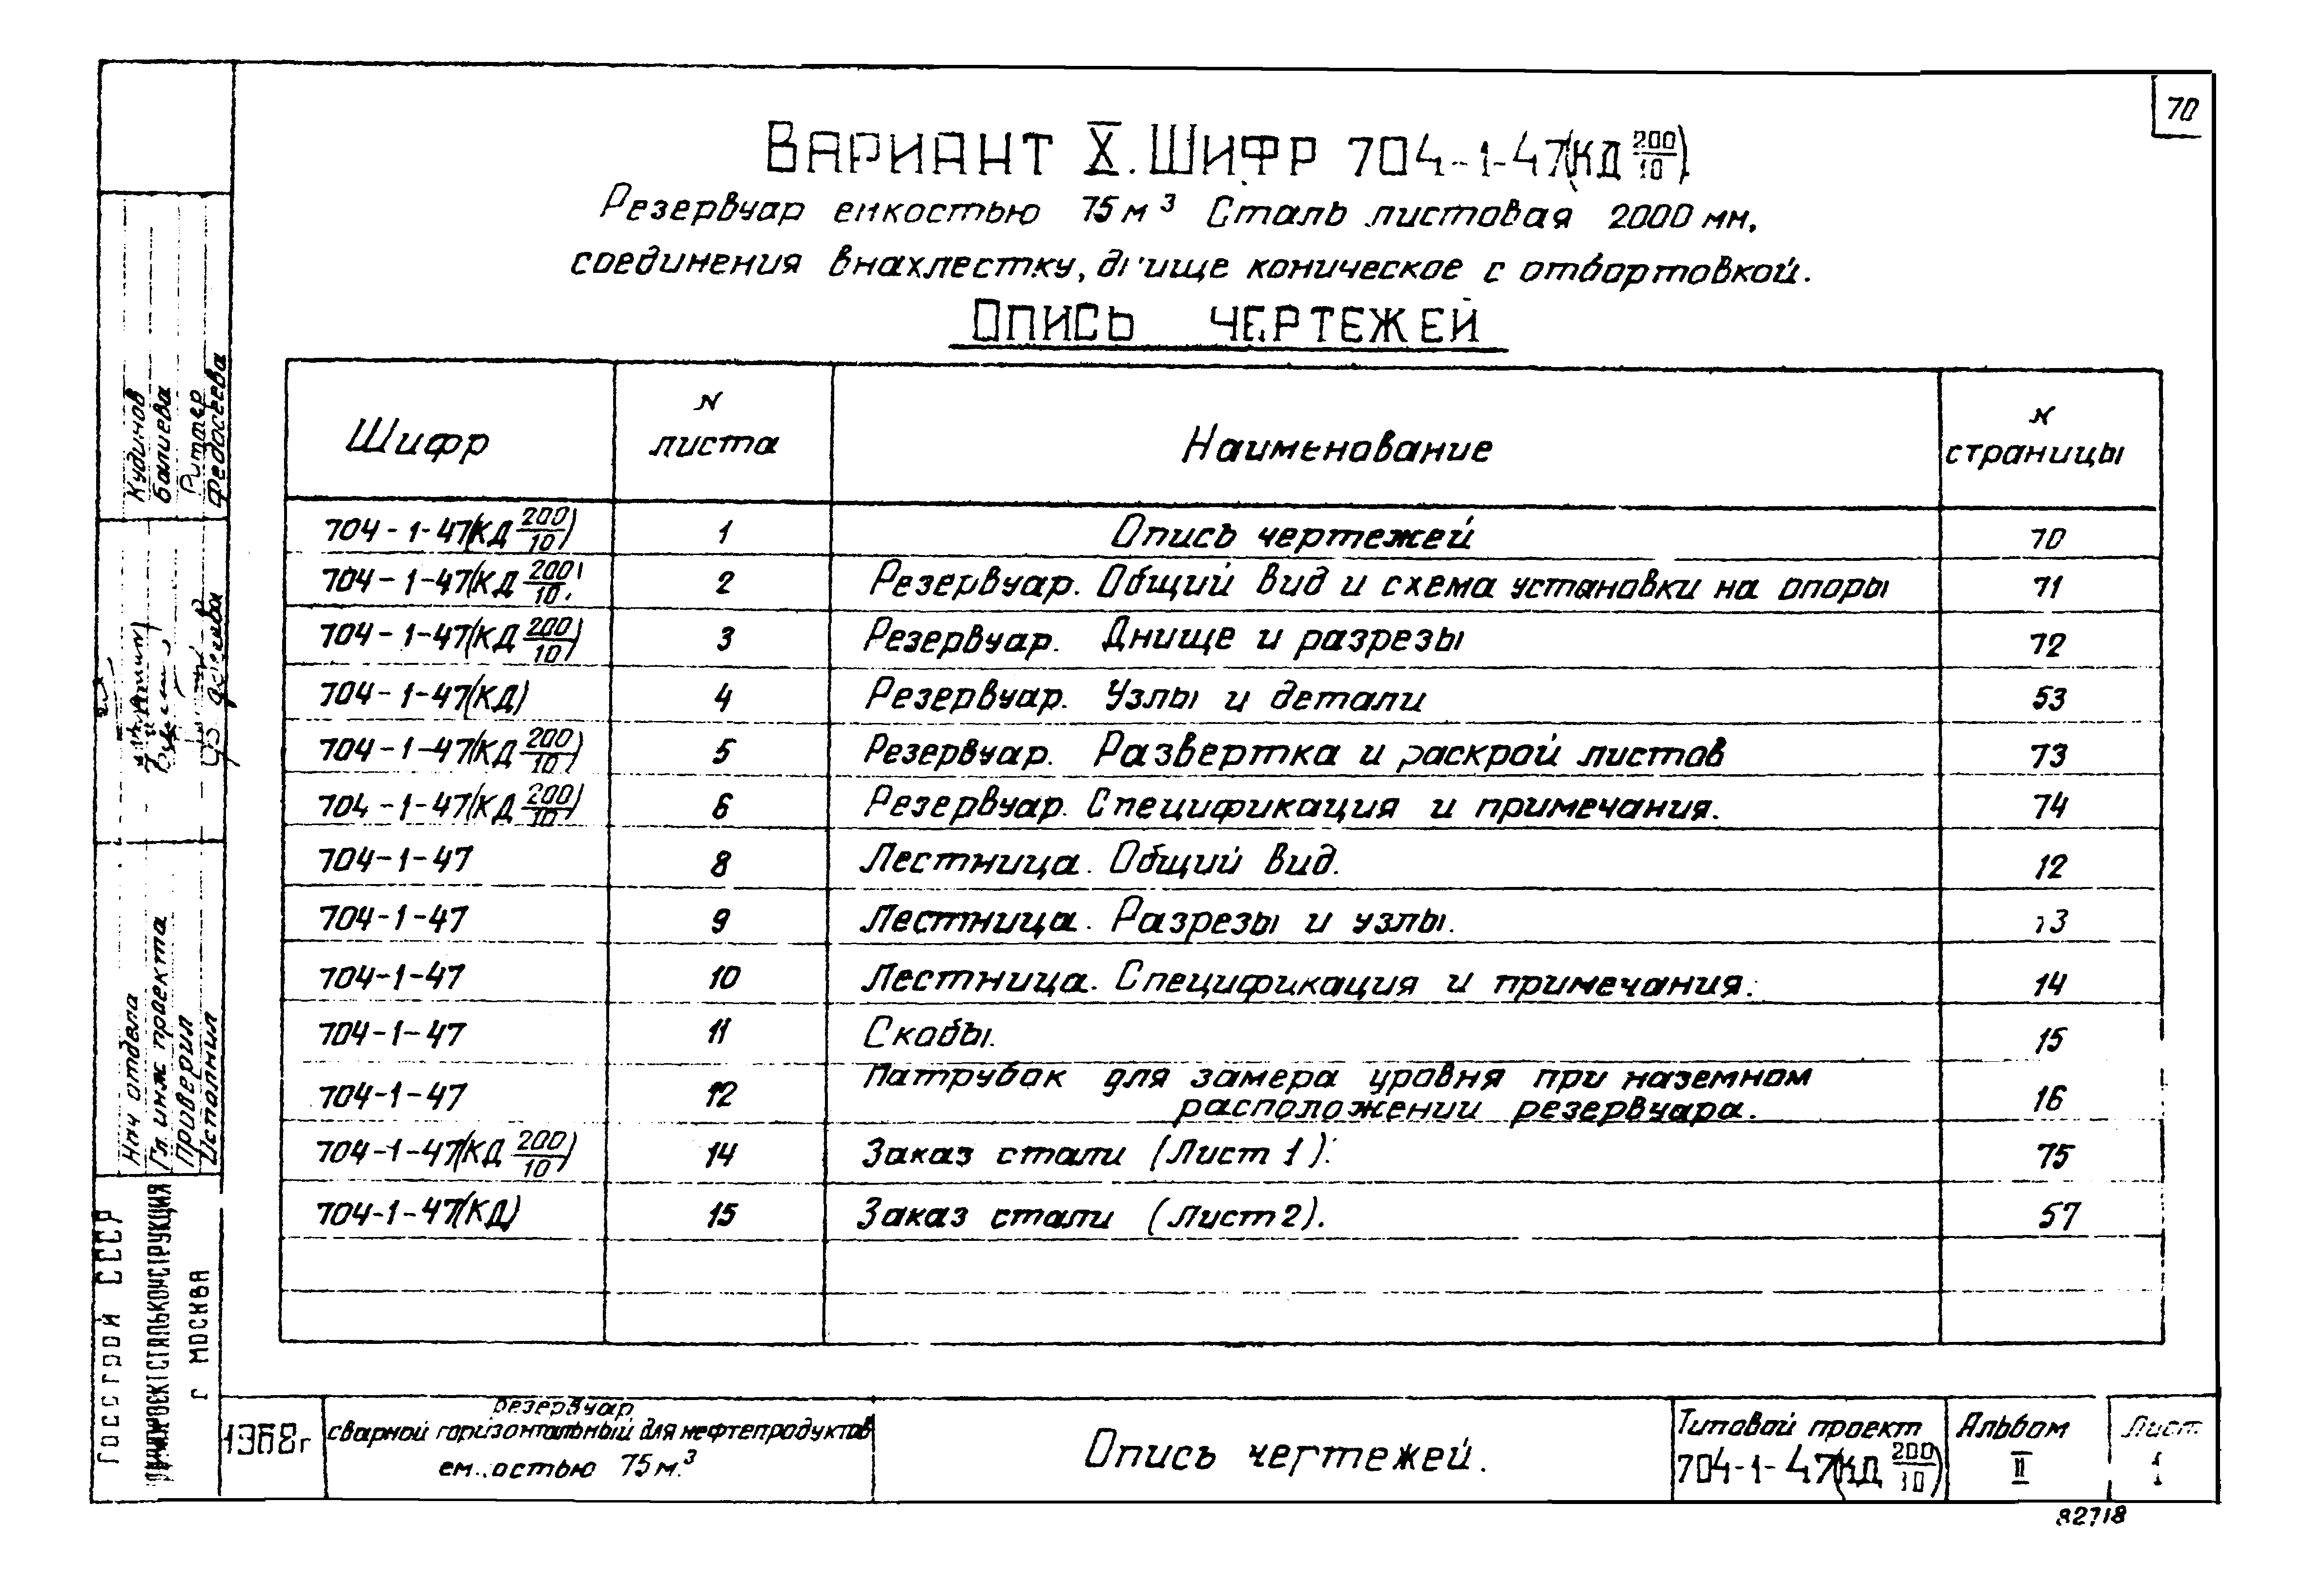 70
ВАРИАНТ X. ШИФР 704-1-47(КД 200/10)
Резервуар емкостью 75 м³ Сталь листовая 2000 мм,
соединения внахлестку, днище коническое с отбортовкой.
ОПИСЬ ЧЕРТЕЖЕЙ
Шифр | N листа | Наименование | N страницы
704-1-47(КД 200/10) | 1 | Опись чертежей | 70
704-1-47(КД 200/10) | 2 | Резервуар. Общий вид и схема установки на опоры | 71
704-1-47(КД 200/10) | 3 | Резервуар. Днище и разрезы | 72
704-1-47(КД) | 4 | Резервуар. Узлы и детали | 53
704-1-47(КД 200/10) | 5 | Резервуар. Развертка и раскрой листов | 73
704-1-47(КД 200/10) | 6 | Резервуар. Спецификация и примечания. | 74
704-1-47 | 8 | Лестница. Общий вид. | 12
704-1-47 | 9 | Лестница. Разрезы и узлы. | 13
704-1-47 | 10 | Лестница. Спецификация и примечания. | 14
704-1-47 | 11 | Скобы. | 15
704-1-47 | 12 | Патрубок для замера уровня при наземном
расположении резервуара. | 16
704-1-47(КД 200/10) | 14 | Заказ стали (Лист 1). | 75
704-1-47(КД) | 15 | Заказ стали (Лист 2). | 57
Кудинов
Балиева
Риттер
Федосеева
Нач отдела
Гл. инж проекта
Проверил
Исполнил
ГОССТРОЙ СССР
г МОСКВА
1968г
Резервуар
сварной горизонтальный для нефтепродуктов
емкостью 75 м.³
Опись чертежей.
Типовой проект
704-1-47(КД 200/10)
Альбом
II
Лист
1
82718